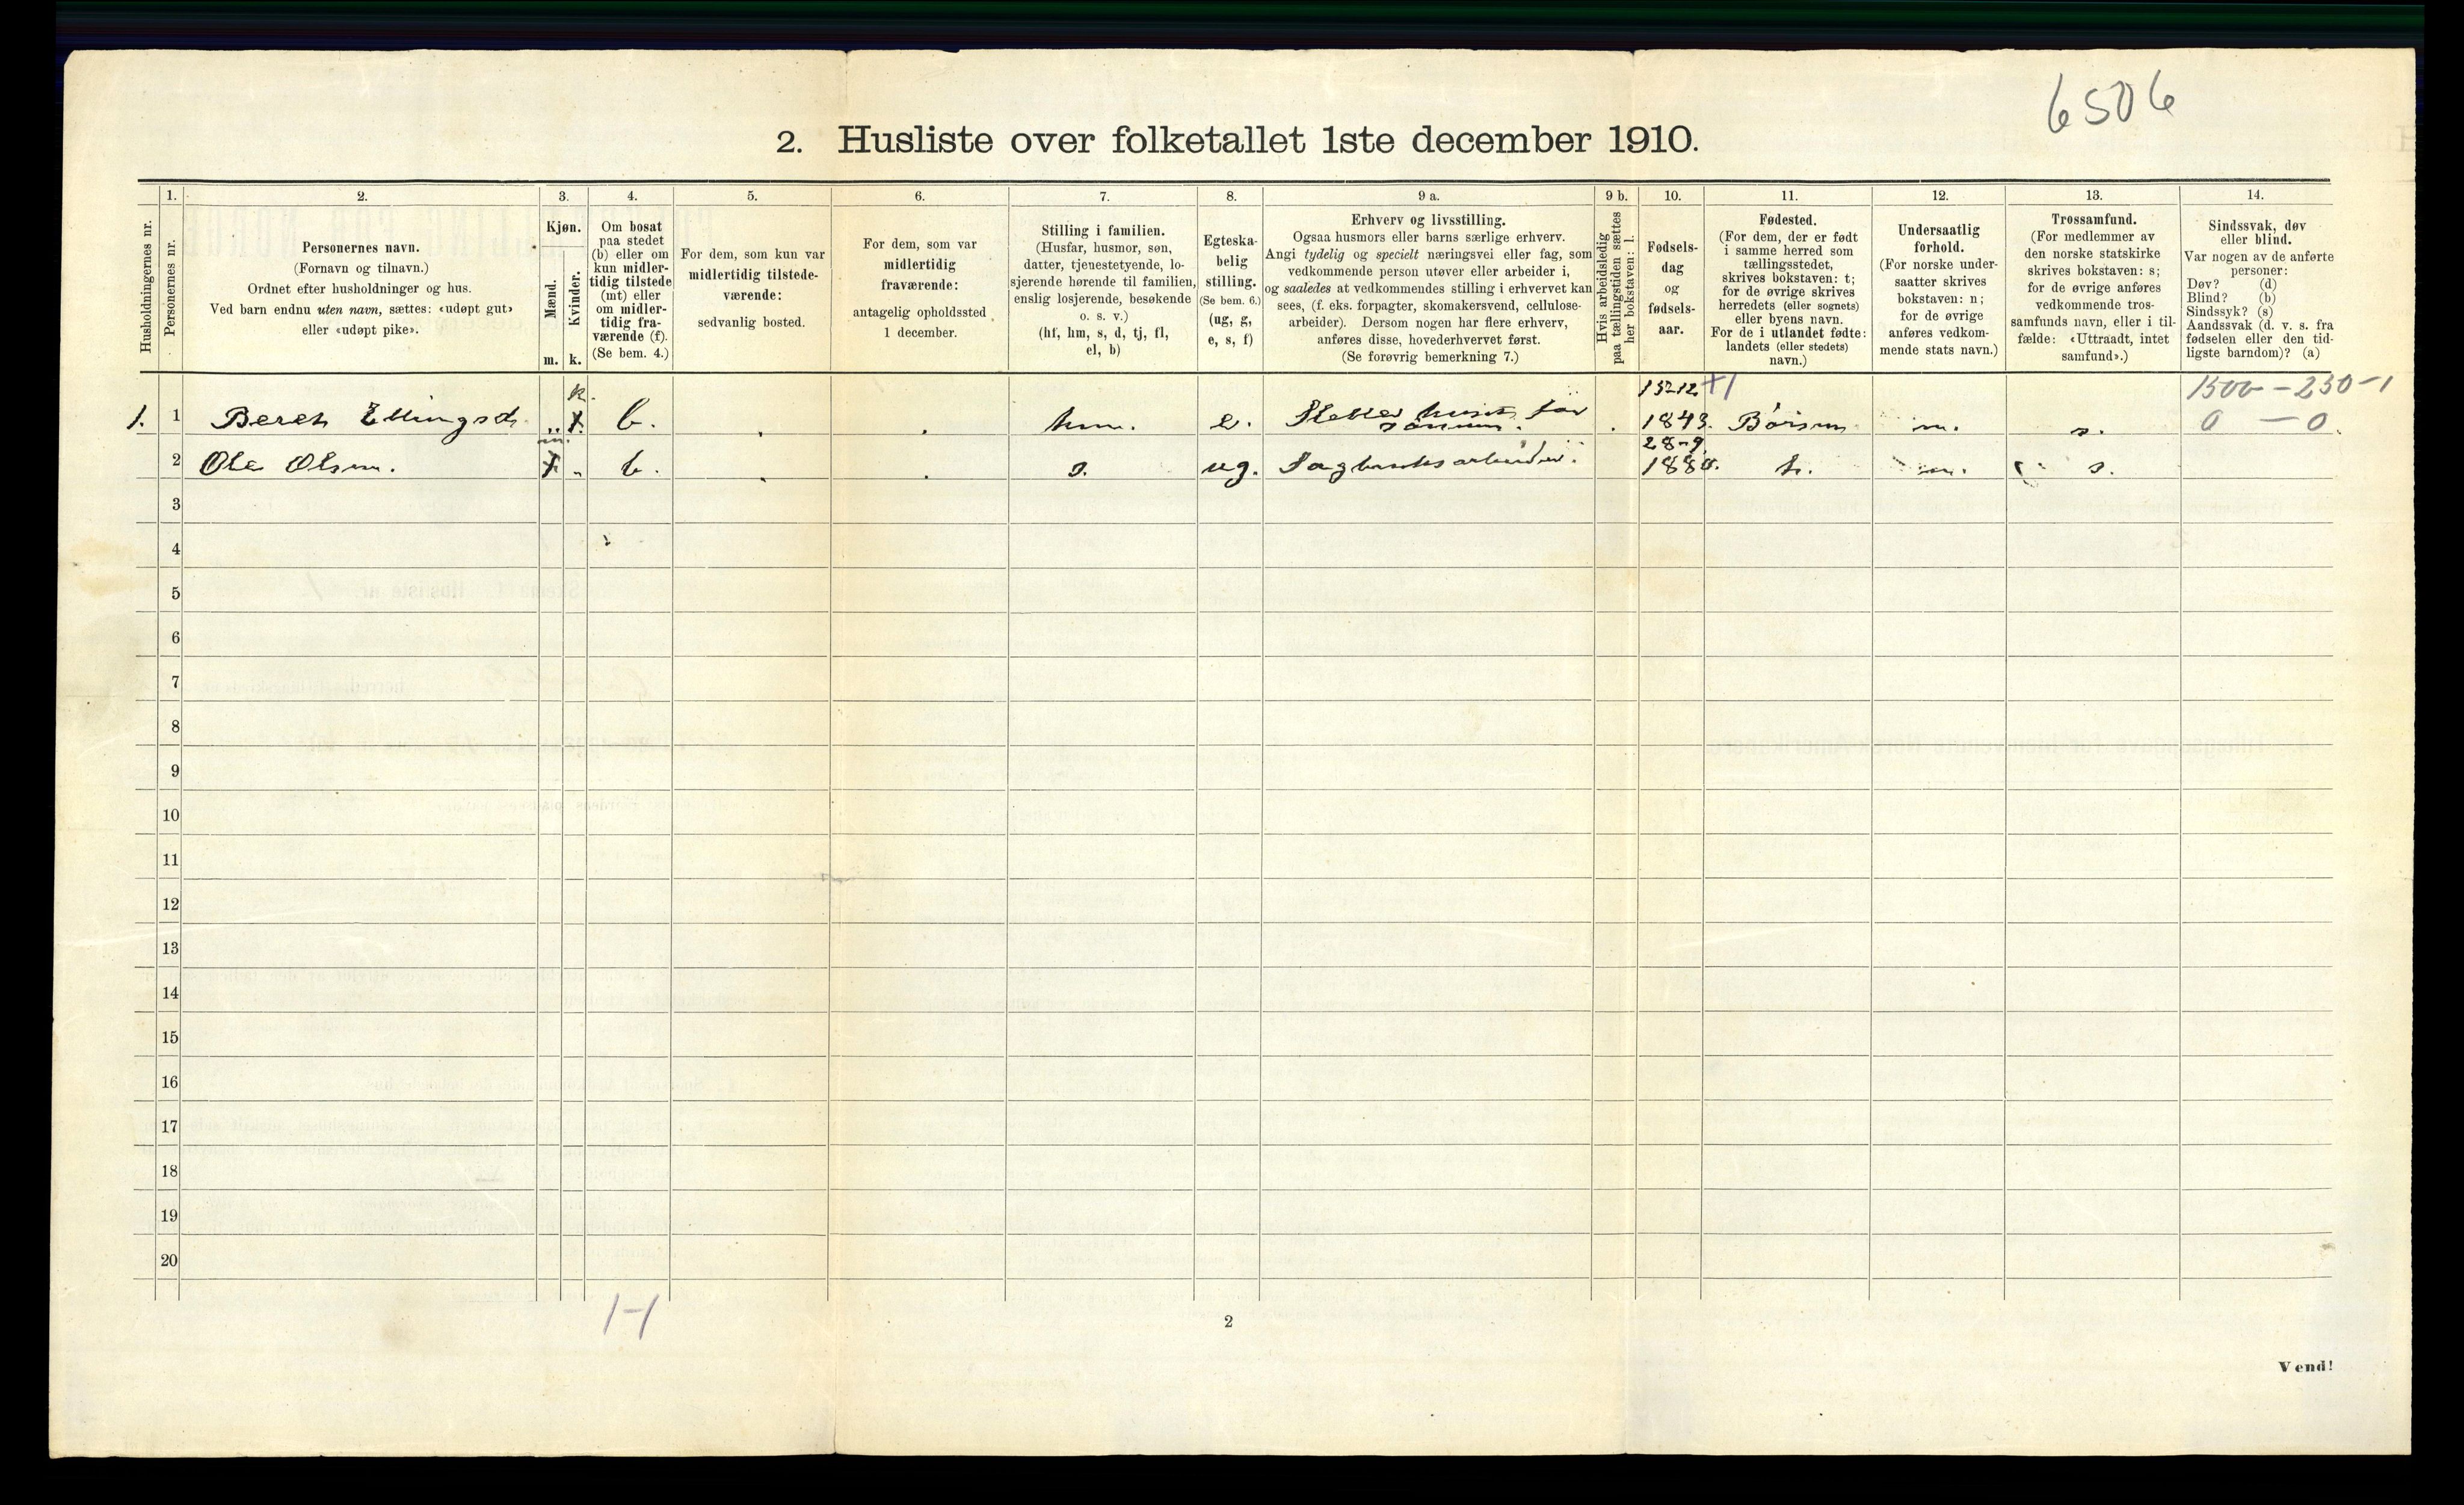 6506
2. Husliste over folketallet 1ste december 1910.
Husholdningernes nr.
1.
Personernes nr.
2.
Personernes navn.
(Fornavn og tilnavn.)
Ordnet efter husholdninger og hus.
Ved barn endnu uten navn, sættes: «udøpt gut»
eller «udøpt pike».
3.
Kjøn.
Mænd.
Kvinder.
m. k.
4.
Om bosat
paa stedet
(b) eller om
kun midler-
tidig tilstede
(mt) eller
om midler-
tidig fra-
værende (f).
(Se bem. 4.)
5.
For dem, som kun var
midlertidig tilstede-
værende:
sedvanlig bosted.
6.
For dem, som var
midlertidig
fraværende:
antagelig opholdssted
1 december.
7.
Stilling i familien.
(Husfar, husmor, søn,
datter, tjenestetyende, lo-
sjerende hørende til familien,
enslig losjerende, besøkende
o. s. v.)
(hf, hm, s, d, tj, fl,
el, b)
8.
Egteska-
belig
stilling.
(Se bem. 6.)
(ug, g,
e, s, f)
9 a.
Erhverv og livsstilling.
Ogsaa husmors eller barns særlige erhverv.
Angi tydelig og specielt næringsvei eller fag, som
vedkommende person utøver eller arbeider i,
og saaledes at vedkommendes stilling i erhvervet kan
sees, (f. eks. forpagter, skomakersvend, cellulose-
arbeider). Dersom nogen har flere erhverv,
anføres disse, hovederhvervet først.
(Se forøvrig bemerkning 7.)
9 b.
Hvis arbeidsledig
paa tællingstiden sættes
her bokstaven: l.
10.
Fødsels-
dag
og
fødsels-
aar.
11.
Fødested.
(For dem, der er født
i samme herred som
tællingsstedet,
skrives bokstaven: t;
for de øvrige skrives
herredets (eller sognets)
eller byens navn.
For de i utlandet fødte:
landets (eller stedets)
navn.)
12.
Undersaatlig
forhold.
(For norske under-
saatter skrives
bokstaven: n;
for de øvrige
anføres vedkom-
mende stats navn.)
13.
Trossamfund.
(For medlemmer av
den norske statskirke
skrives bokstaven: s;
for de øvrige anføres
vedkommende tros-
samfunds navn, eller i til-
fælde: «Uttraadt, intet
samfund».)
14.
Sindssvak, døv
eller blind.
Var nogen av de anførte
personer:
Døv? (d)
Blind? (b)
Sindssyk? (s)
Aandssvak (d. v. s. fra
fødselen eller den tid-
ligste barndom)? (a)
k. 15-12 +1 1500 - 250 - 1
1. 1 Beret Ellingsd. „ x b. hm. e. Steller huset for 1843. Börsen n. s. 0 - 0
sönnen.
m. 28-9
2 Ole Olsen. x „ b. s. ug. Sagbruksarbeider. 1880. t. n. s.
3
4
5
6
7
8
9
10
11
12
13
14
15
16
17
18
19
20
1-1
2
Vend!